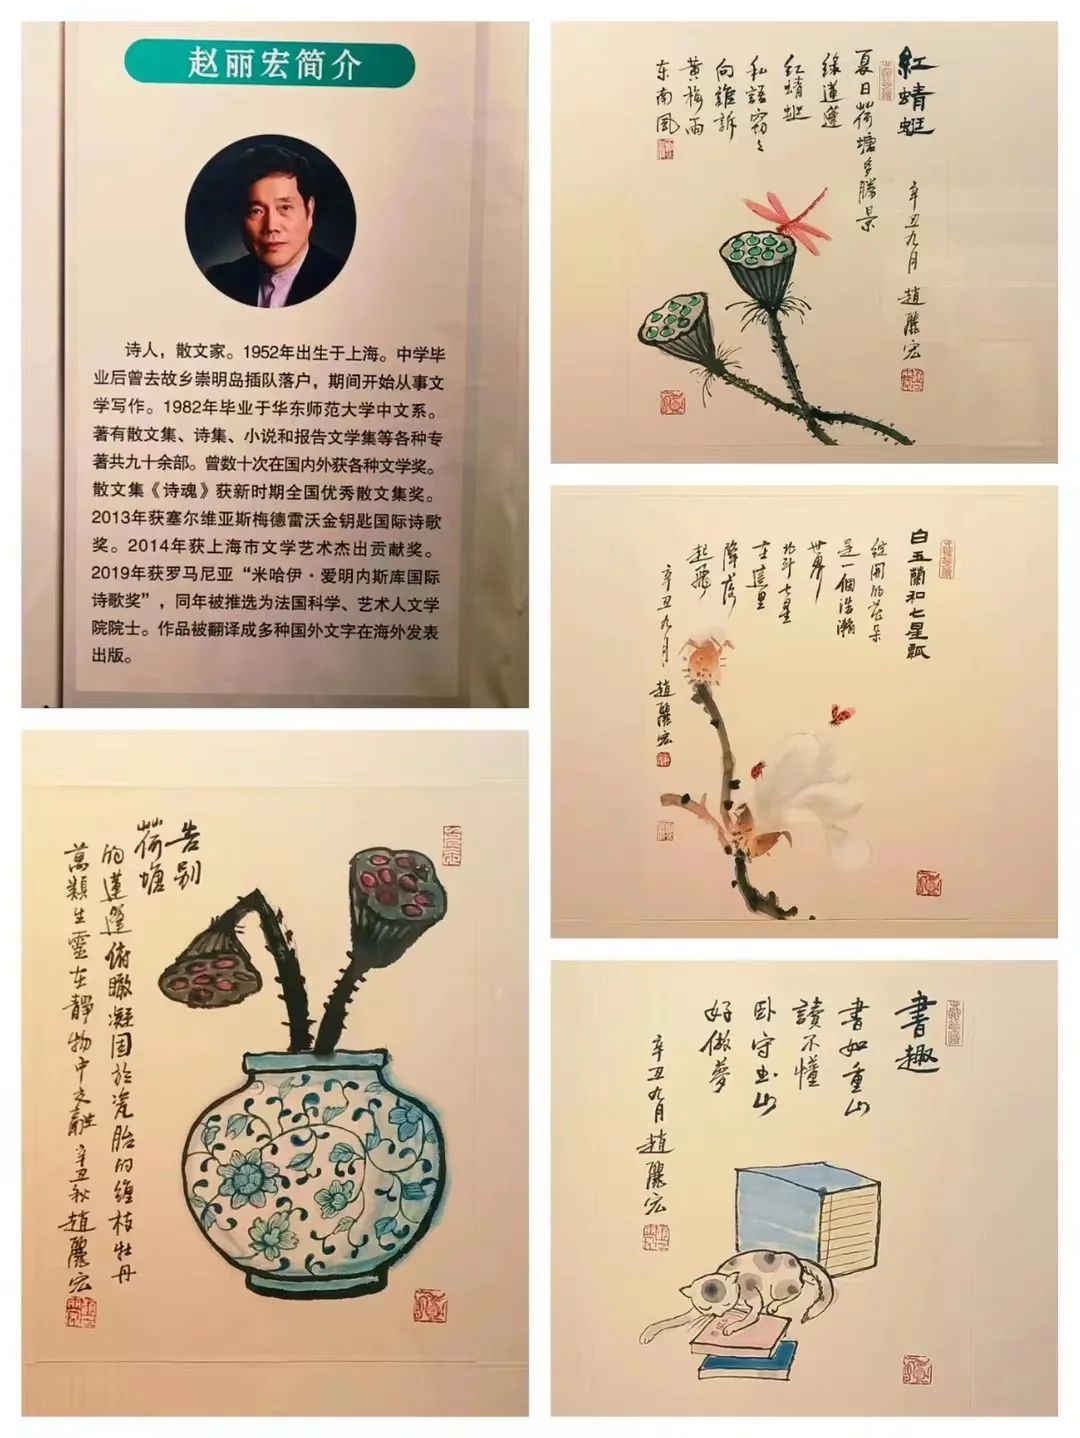 赵丽宏简介
诗人，散文家。1952年出生于上海。中学毕
业后曾去故乡崇明岛插队落户，期间开始从事文
学写作。1982年毕业于华东师范大学中文系。
著有散文集、诗集、小说和报告文学集等各种专
著共九十余部。曾数十次在国内外获各种文学奖。
散文集《诗魂》获新时期全国优秀散文集奖。
2013年获塞尔维亚斯梅德雷沃金钥匙国际诗歌
奖。2014年获上海市文学艺术杰出贡献奖。
2019年获罗马尼亚“米哈伊·爱明内斯库国际
诗歌奖”，同年被推选为法国科学、艺术人文学
院院士。作品被翻译成多种国外文字在海外发表
出版。
紅蜻蜓
夏日荷塘多勝景
綠蓮蓬
紅蜻蜓
私語竊々
向誰訴
黄梅雨
东南風
辛丑九月 趙麗宏
白玉蘭和七星瓢
綻開的花朵
是一個浩瀚
世界
北斗七星
在這里
降落
起飛
辛丑九月 趙麗宏
告别
荷塘
的蓮蓬俯瞰凝固於瓷胎的缠枝牡丹
萬類生靈在静物中交融 辛丑秋 趙麗宏
書趣
書如重山
讀不懂
卧守出山
好做夢
辛丑九月 趙麗宏